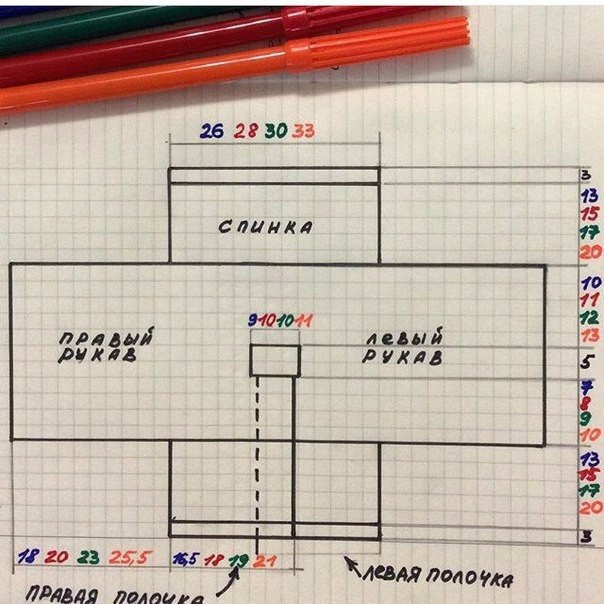 26 28 30 33
3
СПИНКА
13
15
17
20
10
11
12
13
9 10 10 11
ПРАВЫЙ
РУКАВ
ЛЕВЫЙ
РУКАВ
5
7
8
9
10
13
15
17
20
3
18 20 23 25,5 16,5 18 19 21
ПРАВАЯ ПОЛОЧКА
ЛЕВАЯ ПОЛОЧКА